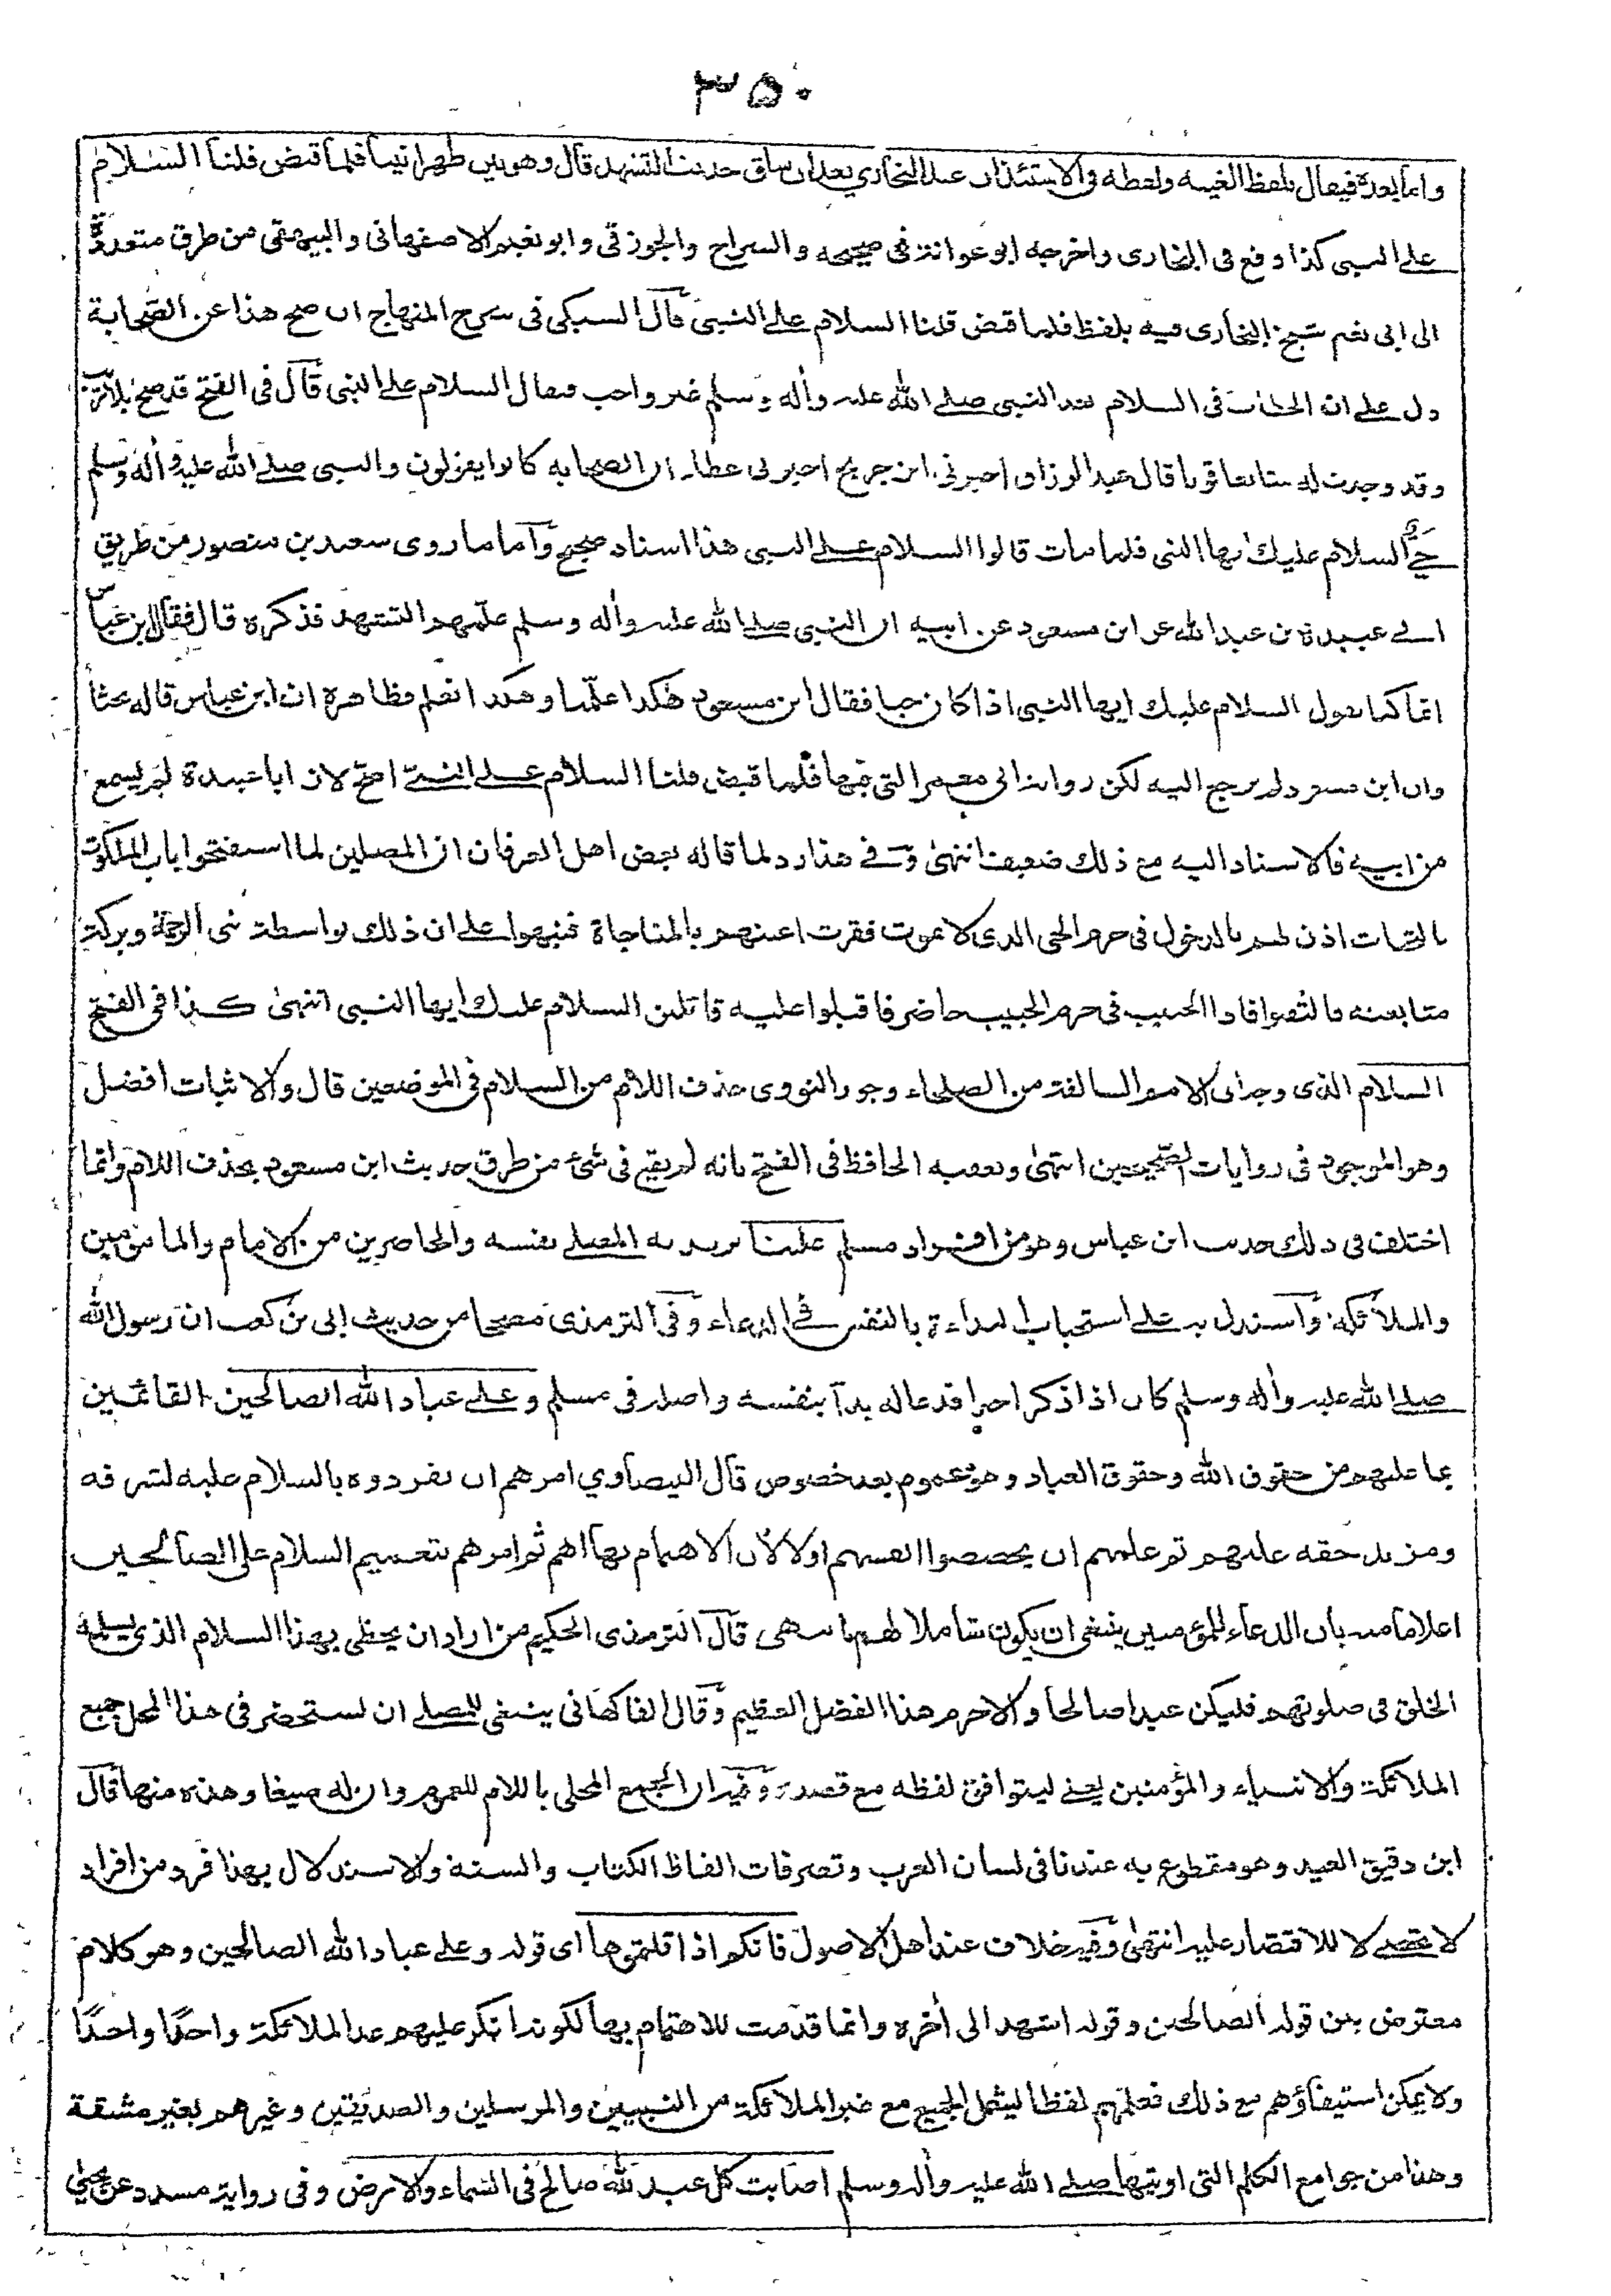 ٣٥٠
واما بعده فيقال بلفظ الغيبه ولفظه فى الاستئذان عند البخاري بعد ان ساق حديث التشهد قال وهو بين ظهرانينا فلما قبض قلنا السلام
على النبى كذا وقع فى البخارى واخرجه ابو عوانة فى صحيحه والسراج والجوزقى وابو نعيم الاصفهانى والبيهقى من طرق متعددة
الى ابى نعيم شيخ البخارى فيه بلفظ فلما قبض قلنا السلام على النبى قال السبكى فى شرح المنهاج ان صح هذا عن الصحابة
دل على ان الخطاب فى السلام بعد النبى صلى الله عليه وأله وسلم غير واجب فيقال السلام على النبى قال فى الفتح قد صح بلا ريب
وقد وجدت له متابعا قويا قال عبد الرزاق اخبرنى ابن جريج اخبرنى عطاء ان الصحابه كانوا يقولون والنبى صلى الله عليه وأله وسلم
حيّ السلام عليك ايها النبى فلما مات قالوا السلام على النبى هذا اسناد صحيح وأما ما روى سعيد بن منصور من طريق
ابى عبيدة بن عبد الله عن ابن مسعود عن ابيه ان النبى صلى الله عليه وأله وسلم علّمهم التشهد فذكره قال فقال ابن عباس
انما كنا نقول السلام عليك ايها النبى اذا كان حيا فقال ابن مسعود هكذا علّمنا وهكذا نعلم فظاهره ان ابن عباس قاله بحثا
وان ابن مسعود لم يرجع اليه لكن رواية ابى معمر التى فيها فلما قبض قلنا السلام على النبىّ اصحّ لان ابا عبيدة لم يسمع
من ابيه فالاسناد اليه مع ذلك ضعيف انتهى وفى هذا رد لما قاله بعض اهل العرفان ان المصلين لما استفتحوا باب الملكوت
بالتحيات اذن لهم بالدخول فى حرم الحى الذى لا يموت فقرت اعينهم بالمناجاة فنبهوا على ان ذلك بواسطة نبى الرحمة وبركة
متابعته فالتفتوا فاذا الحبيب فى حرم الحبيب حاضر فاقبلوا عليه قائلين السلام عليك ايها النبى انتهى كذا فى الفتح
السلام الذى وجد فى الامم السالفة من الصلحاء وجوز النووى حذف اللام من السلام فى الموضعين قال والاثبات افضل
وهو الموجود فى روايات الصحيحين انتهى وتعقبه الحافظ فى الفتح بانه لم يقع فى شئ من طرق حديث ابن مسعود بحذف اللام وانما
اختلف فى ذلك حديث ابن عباس وهو من افراد مسلم علينا يريد به المصلى نفسه والحاضرين من الامام والمأمومين
والملائكة وأستدل به على استحباب البداءة بالنفس فى الدعاء وفى الترمذى مصححا من حديث ابى بن كعب ان رسول الله
صلى الله عليه وأله وسلم كان اذا ذكر احدا فدعا له بدأ بنفسه واصله فى مسلم وعلى عباد الله الصالحين القائمين
بما عليهم من حقوق الله وحقوق العباد وهو عموم بعد خصوص قال البيضاوي امرهم ان يفردوه بالسلام عليه لشرفه
ومزيد حقه عليهم ثم علمهم ان يخصصوا انفسهم اولا لان الاهتمام بها اهم ثم امرهم بتعميم السلام على الصالحين
اعلاما منه بان الدعاء للمؤمنين ينبغى ان يكون شاملا لهم انتهى قال الترمذى الحكيم من اراد ان يحظى بهذا السلام الذى يسلمه
الخلق فى صلوتهم فليكن عبدا صالحا والا حرم هذا الفضل العظيم وقال الفاكهانى ينبغى للمصلى ان يستحضر فى هذا المحل جميع
الملائكة والانبياء والمؤمنين يعنى ليتوافق لفظه مع قصده وفيه ان الجمع المحلى باللام للعموم وان له صيغا وهذه منها قال
ابن دقيق العيد وهو مقطوع به عندنا فى لسان العرب وتصرفات الفاظ الكتاب والسنة والاستدلال بهذا فرد من افراد
لا تحصى لا للاقتصار عليه انتهى وفيه خلاف عند اهل الاصول فانكم اذا قلتموها اى قوله وعلى عباد الله الصالحين وهو كلام
معترض بين قوله الصالحين وقوله اشهد الى أخره وانما قدمت للاهتمام بها لكونه انكر عليهم عد الملائكة واحدًا واحدًا
ولا يمكن استيفاؤهم مع ذلك فعلّمهم لفظا يشمل الجميع مع غير الملائكة من النبيين والمرسلين والصديقين وغيرهم بغير مشقة
وهذا من جوامع الكلم التى اوتيها صلى الله عليه وأله وسلم اصابت كل عبد لله صالح فى السماء والارض وفى رواية مسدد عن يحيى